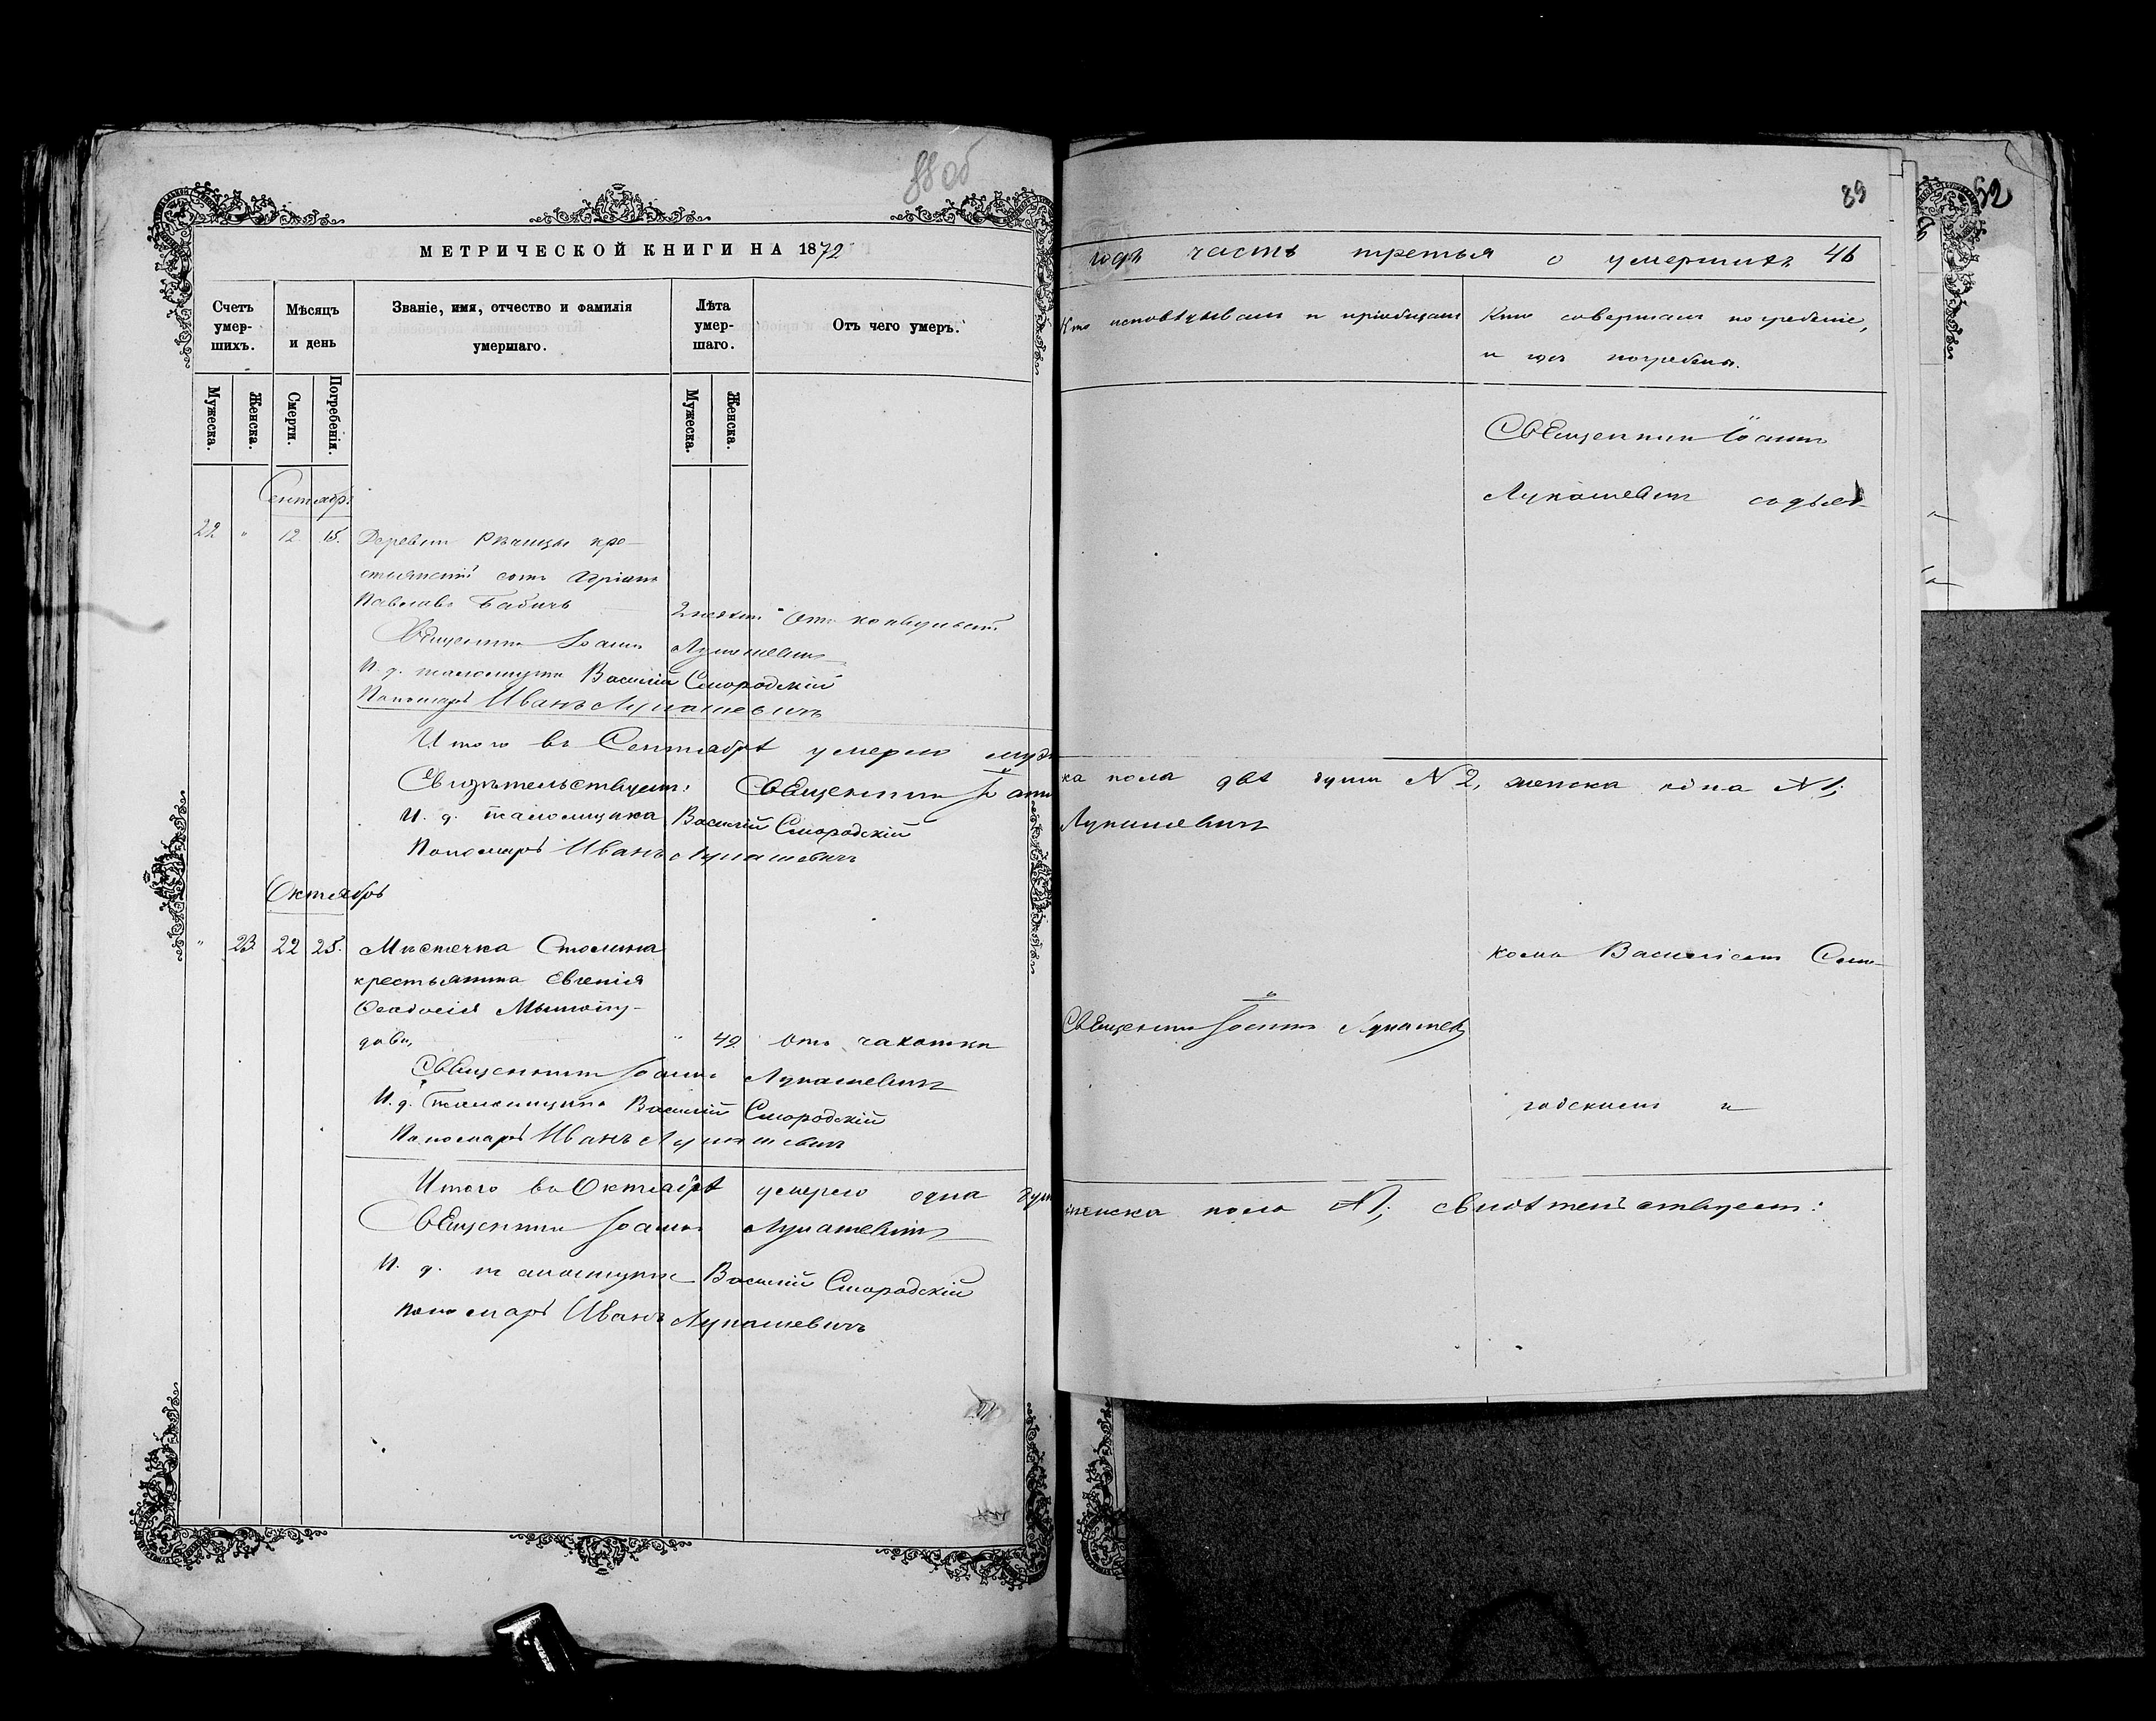 88 об
МЕТРИЧЕСКОЙ КНИГИ НА 1872
Счетъ умер-шихъ.
Мѣсяцъ и день
Званіе, имя, отчество и фамилія умершаго.
Лѣта умер-шаго.
Отъ чего умеръ.
Мужеска.
Женска.
Смерти.
Погребенія.
Мужеска.
Женска.
Сентябрь
22 " 12 15. Деревни Рѣчицы кре-
стьянскій сынъ Адріанъ
Павловъ Бабичъ 2 " Отъ конвульсій
Священникъ Іоаннъ Лукашевичъ
И. д. псаломщика Василій Смородскій
Пономарь Иванъ Лукашевичъ
Итого въ Сентябрѣ умерло муже
Свидѣтельствуемъ: Священникъ Іоаннъ
И. д. псаломщика Василій Смородскій
Пономарь Иванъ Лукашевичъ
Октябрь
" 23 22 25. Мѣстечка Столина
крестьянка Евгенія
" 49 отъ чахотки
Священникъ Іоаннъ Лукашевичъ
И. д. псаломщика Василій Смородскій
Пономарь Иванъ Лукашевичъ
Итого въ Октябрѣ умерло одна душ
Священникъ Іоаннъ Лукашевичъ
И. д. псаломщика Василій Смородскій
Пономарь Иванъ Лукашевичъ
89
года часть третья о умершихъ 46
Кто исповѣдывалъ и пріобщалъ
Кто совершалъ погребеніе,
и гдѣ погребены.
Священникъ Іоаннъ
Лукашевичъ
ка пола двѣ души № 2, женска одна № 1;
Лукашевичъ
Священникъ Іоаннъ Лукашев
Василіемъ Смо-
родскимъ и
женска пола № 1; свидѣтельствуемъ:
52